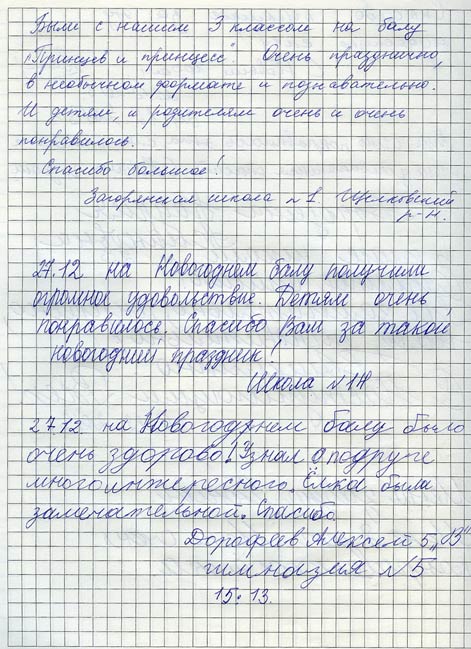 Были с нашим 3 классом на балу
"Принцев и принцесс". Очень празднично,
в необычном формате и познавательно.
И детям, и родителям очень и очень
понравилось.
Спасибо большое!
Загорянская школа №1 Щелковский
р-н.
27.12 на Новогоднем балу получили
огромное удовольствие. Детям очень
понравилось. Спасибо Вам за такой
новогодний праздник!
Школа №14
27.12 на Новогоднем балу было
очень здорово! Узнал о подруге
много интересного. Ёлка была
замечательной. Спасибо.
Дорофеев Алексей 5 "В"
гимназия №5
15:13.